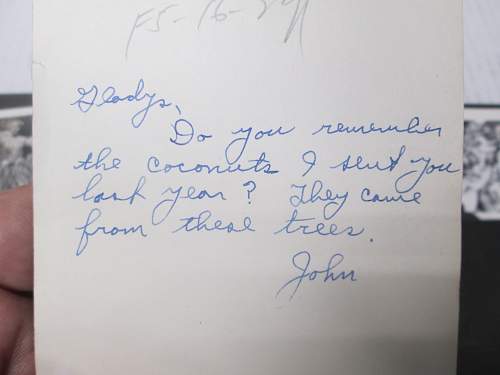 F5-16-29
Gladys,
Do you remember
the coconuts I sent you
last year? They came
from these trees.
John